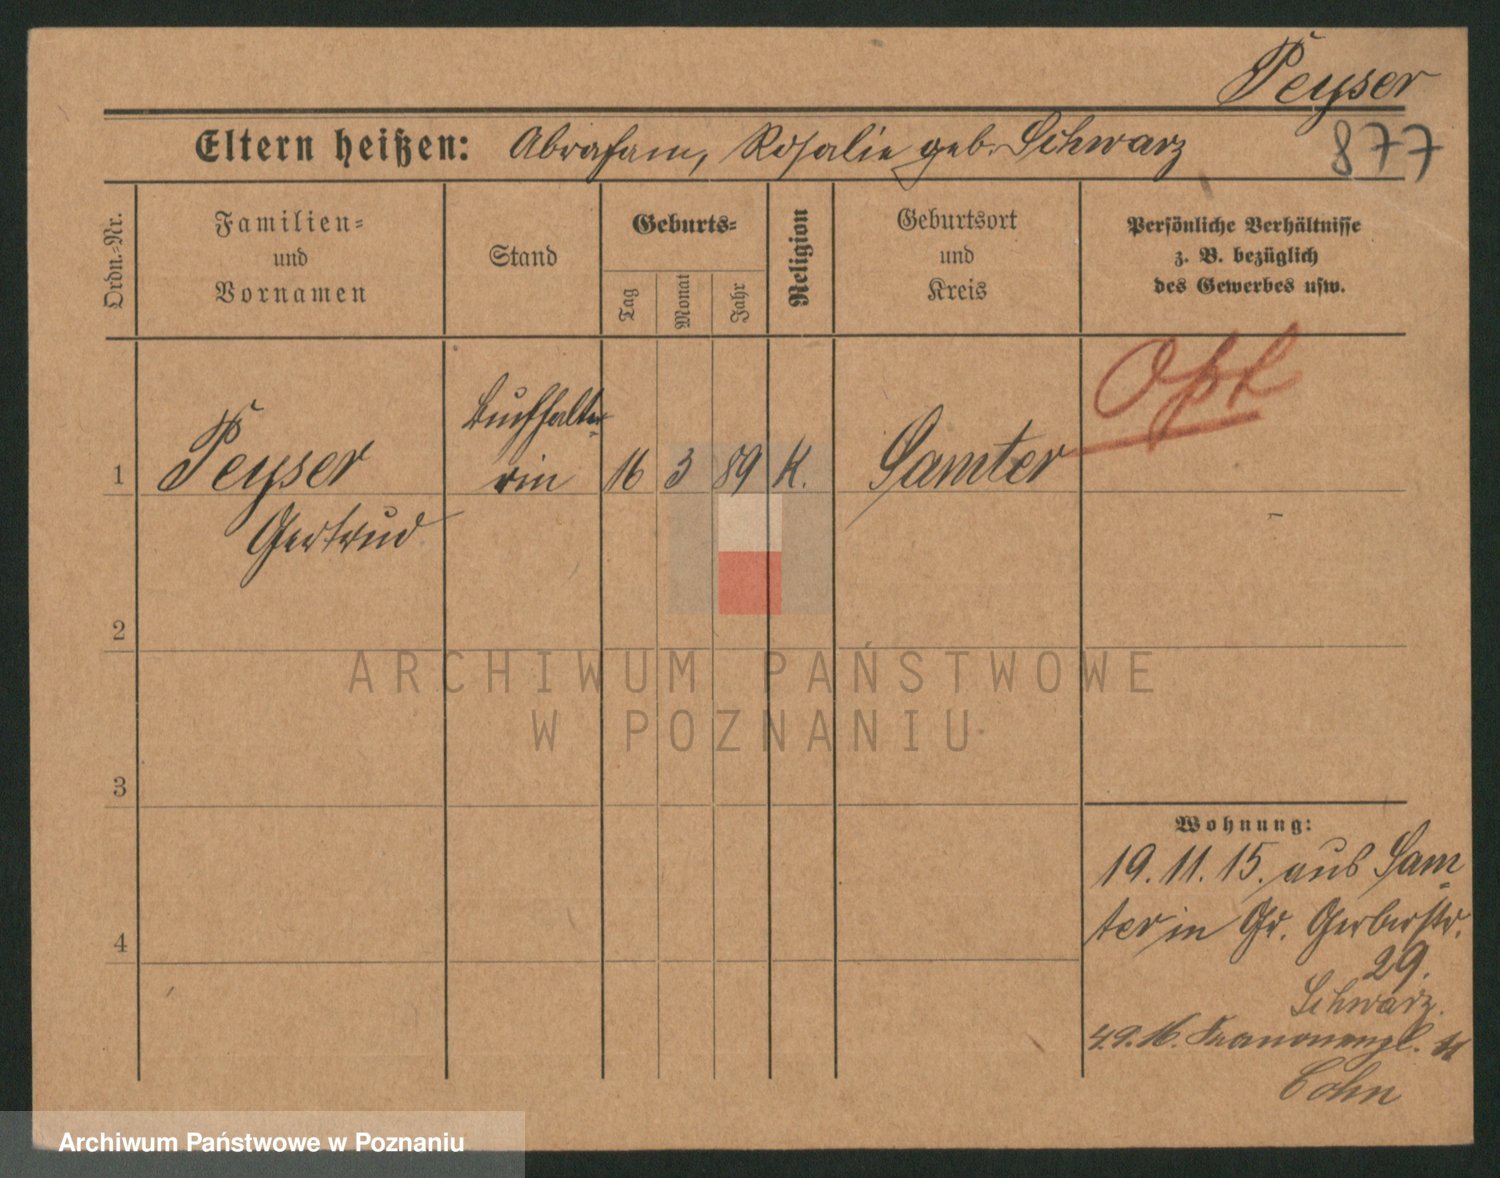 Peyser
Eltern heißen: Abraham, Rosalie geb. Schwarz
877
Ordn.-Nr.
Familien-
und
Vornamen
Stand
Geburts-
Tag
Monat
Jahr
Religion
Geburtsort
und
Kreis
Persönliche Verhältnisse
z. B. bezüglich
des Gewerbes usw.
Buchhalte-
1 Peyser rin 16 3 89 K. Samter
Gertrud
2
ARCHIWUM PAŃSTWOWE
W POZNANIU
3
Wohnung:
19. 11. 15. aus Sam-
4
ter in Gr. Gerberstr.
29.
Schwarz.
4.9.16.
Cohn
Archiwum Państwowe w Poznaniu